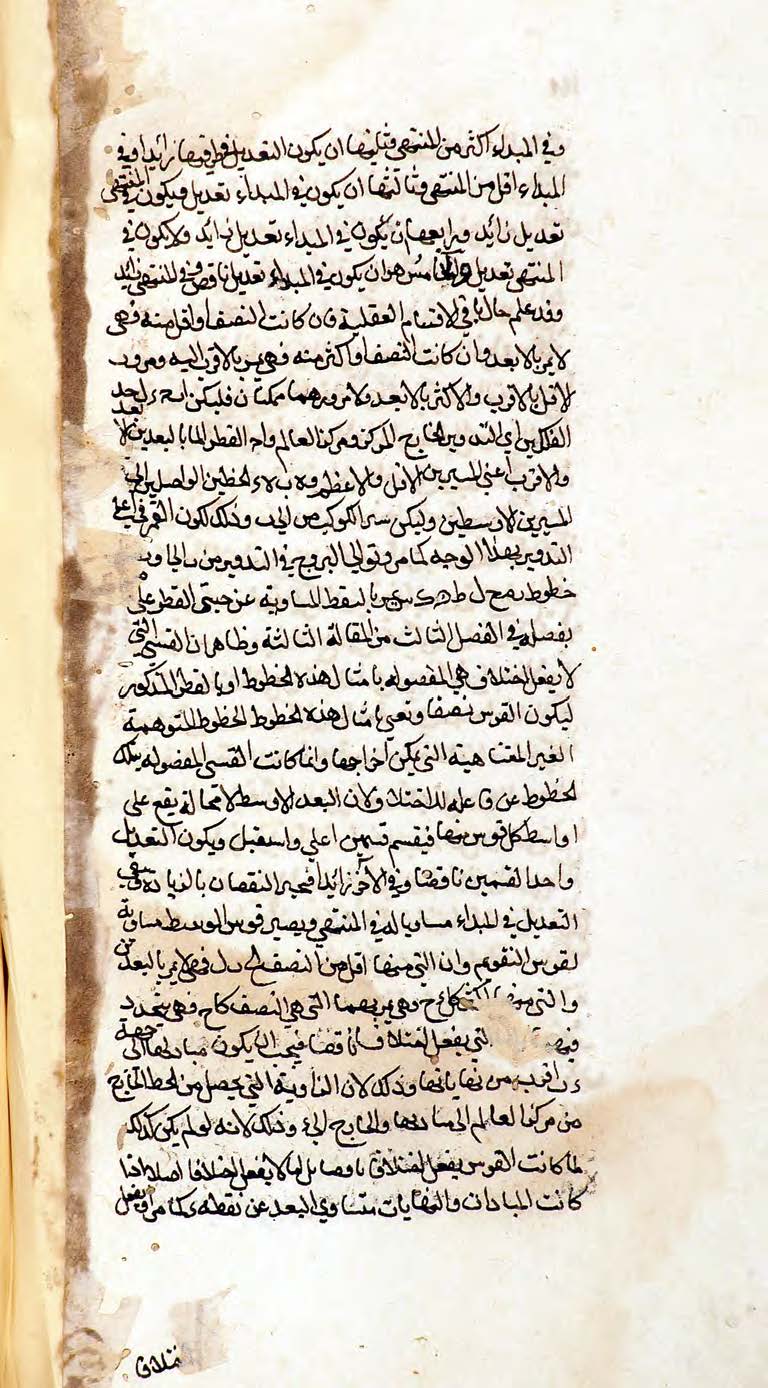 وفي المبداء اكثر من المنتهى وثانيها ان يكون التعديل في طرفيها زائدا وفي
المبداء اقل من المنتهى وثالثها ان يكون في المبداء تعديل ويكون في المنتهى
تعديل زائد ورابعها ان يكون في المبداء تعديل زائد ولا يكون في
المنتهى تعديل والخامس هو ان يكون في المبداء تعديل ناقص وفي المنتهى زائد
وقد علم حال باقي الاقسام العقلية فان كانت النصف او اقل منه فهي
لا يمر بالابعد وان كانت النصف او اكثر منه فهي يمر بالاقرب اليه ومرور
الاقل بالاقرب والاكثر بالابعد ولا مرورهما ممكنان فليكن ا ب ح ء احد
الفلكين اي التدوير الخارج المركز و مركز العالم و ا ح القطر المار بالبعدين الابعد
والاقرب اعني المسيرين الاقل والاعظم و ه ب ه ء الخطين الواصلين الى
المسيرين الاوسطين وليكن سير الكوكب من الى ب وذلك لكون القمر في اعلى
التدوير بهذا الوجه كما مر وتوالي البروج في التدوير من ب الى ا و
خطوط بالنقط المساوية عن جنبتي القطر على
بفصله في الفصل الثالث من المقالة الثالثة وظاهر ان القسي التي
لا يفعل اختلاف هي المفصوله بامثال هذه الخطوط او بالقطر المذكور
ليكون القوس نصفا ونعني بامثال هذه الخطوط الخطوط المتوهمة
الغير المتناهية التي يمكن اخراجها وانما كانت القسي المفصوله بتلك
الخطوط غير فاعله للاختلاف لان البعد الاوسط لا محالة يقع على
اواسط كل قوس منها فيقسم قسمين اعلى واسفل ويكون التعديل
واحد القسمين ناقصا وفي الآخر زائدا فيجبر النقصان بالزيادة فيبقى
التعديل في المبداء مساويا له في المنتهى ويصير قوس الوسط مساوية
لقوس التقويم وان التي منها اقل من النصف فهي لا يمر بالبعد
والتي وهي يمر بهما التي هي النصف كاح فهي يتحدد
التي يفعل اختلافا ناقصا فيجب ان يكون مباديها الى جهة
ء اقرب من نهاياتها وذلك لان الزاوية التي يحصل من الخط الخارج
من مركز العالم الى مباديها والخارج الى ء وذلك لانه لو لم يكن كذلك
لما كانت القوس يفعل اختلافا ناقصا بل اما لا يفعل اختلافا اصلا اذا
كانت المباديات والنهايات متساوي البعد عن نقطة ء كما مر او يفعل
ختلافا